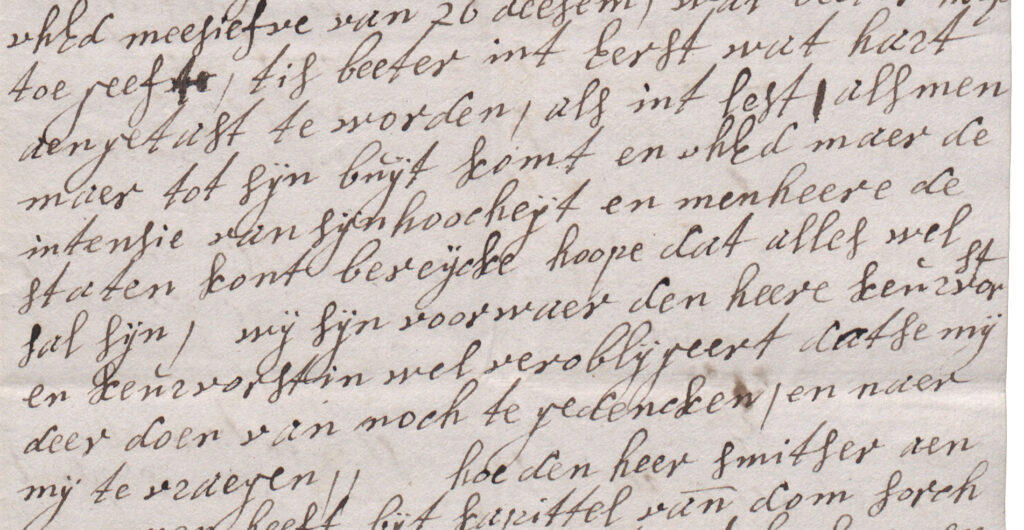 vhEd meesiefve van 26 deesem, wat
toe geefte, tis beeter int eerst wat hart
aengetast te worden, als int lest, alsmen
maer tot sijn buijt komt en vhEd maer de
intensie van sijnhoocheijt en menheere de
staten kont bereijcke hoope dat alles wel
sal sijn, wij sijn voorwaer den heere keurvorst
en keurvorstin wel veroblijgeert datse mij
deer doen van noch te gedencken, en naer
mij te vraegen,, hoe den heer smitser aen
heeft bijt kapittel van dom sorch